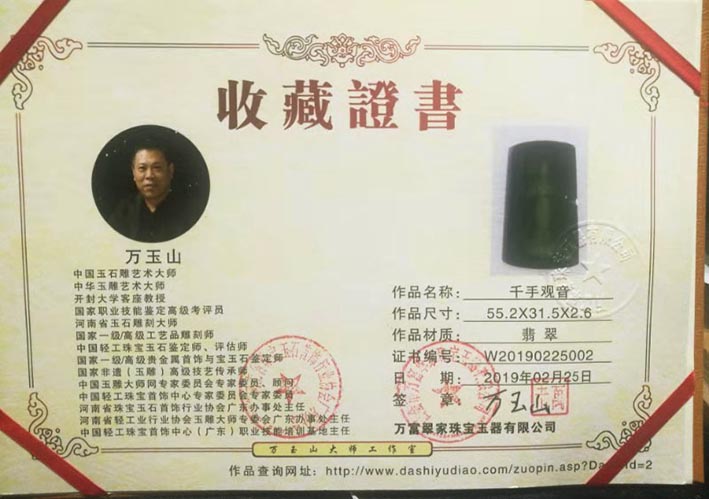 收藏證書
万玉山
中国玉石雕艺术大师
中华玉雕艺术大师
开封大学客座教授
国家职业技能鉴定高级考评员
河南省玉石雕刻大师
国家一级/高级工艺品雕刻师
中国轻工珠宝玉石鉴定师、评估师
国家一级/高级贵金属首饰与宝玉石鉴定师
国家非遗（玉雕）高级技艺传承师
中国玉雕大师网专家委员会专家委员、顾问
中国轻工珠宝首饰中心专家委员会专家委员
河南省珠宝玉石首饰行业协会广东办事处主任
河南省轻工业行业协会玉雕大师专委会广东办事处主任
中国轻工珠宝首饰中心（广东）职业技能培训基地主任
作品名称：千手观音
作品尺寸：55.2X31.5X2.6
作品材质：翡翠
证书编号：W20190225002
日期：2019年02月25日
签章：万玉山
万富翠家珠宝玉器有限公司
万玉山大师工作室
作品查询网址：http://www.dashiyudiao.com/zuopin.asp?